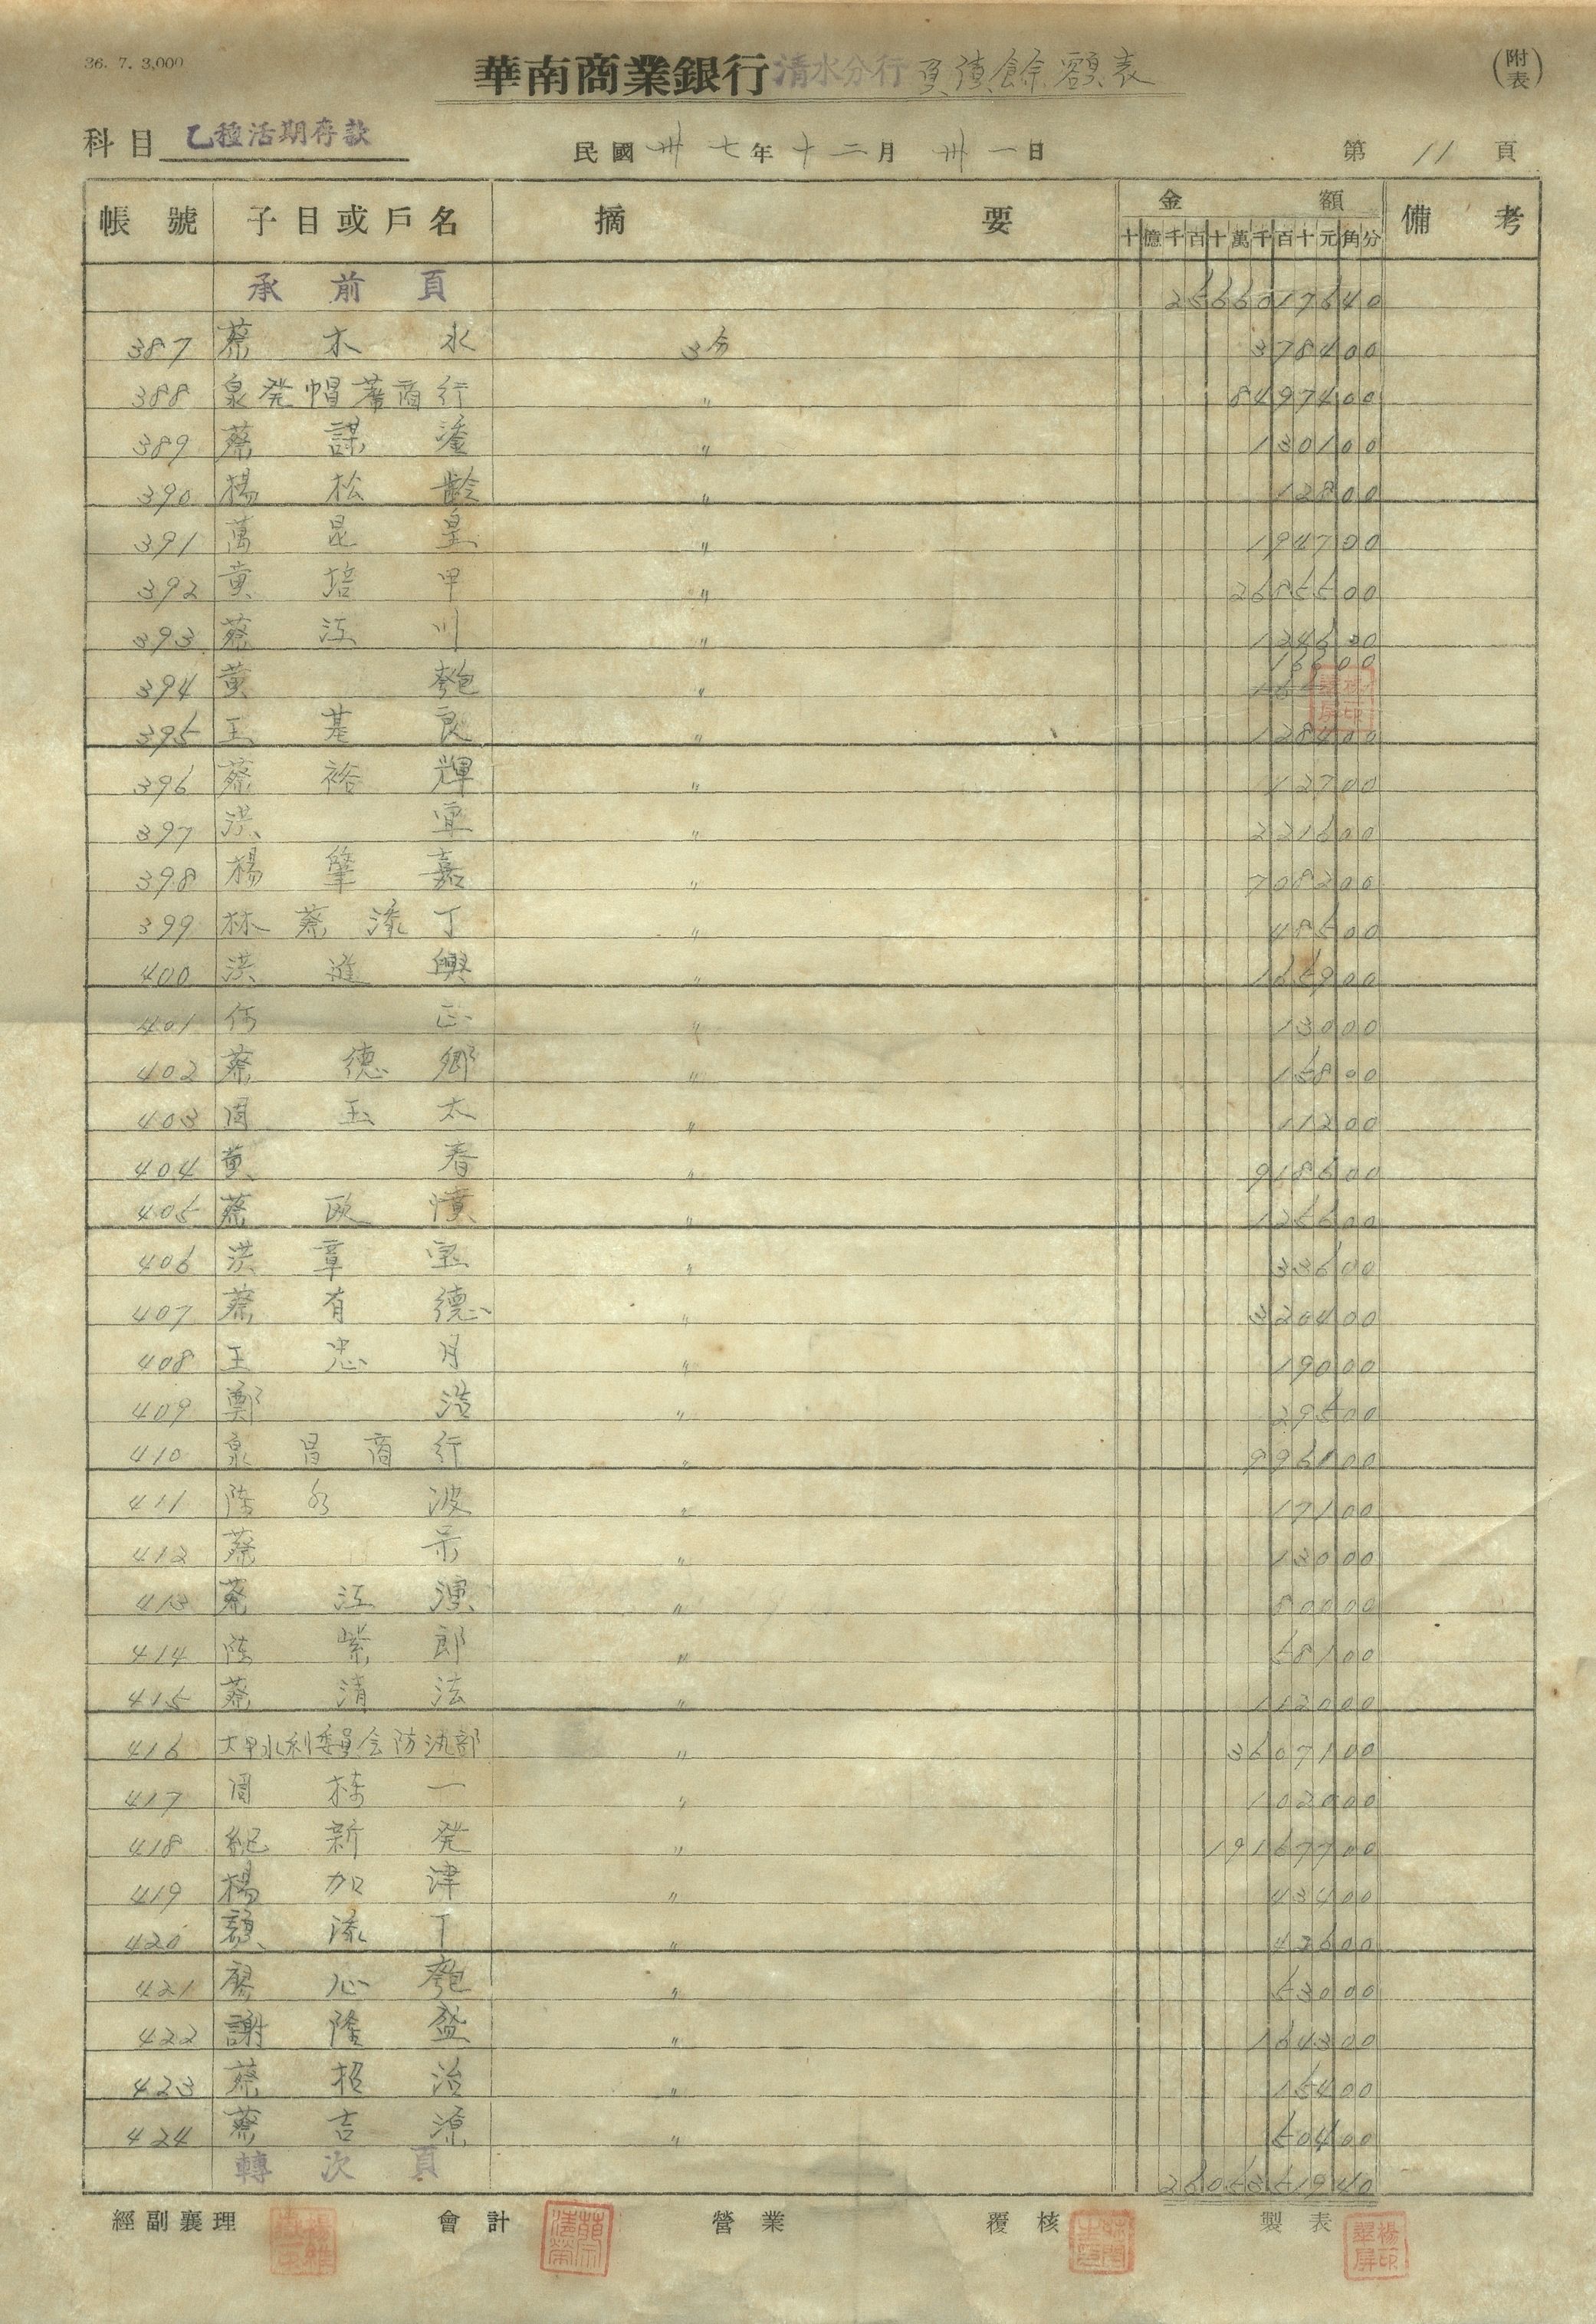 36. 7. 3,000
華南商業銀行清水分行負債餘額表
(附表)
科目 乙種活期存款 民國卅七年十二月卅一日 第11頁
帳號 子目或戶名 摘要 金額 備考
十億千百十萬千百十元角分
承前頁 2566017640
387 蔡木水 3分 378400
388 泉発帽蓆商行 〃 8497400
389 蔡謀 〃 130100
390 楊松齡 〃 12800
391 萬昆 〃 194700
392 黄培甲 〃 2685500
393 蔡江川 〃
394 黄 〃
395 王基良 〃 128400
396 蔡裕輝 〃 12700
397 洪 〃 221600
398 楊肇嘉 〃 708200
399 林蔡添丁 〃 48500
400 洪進興 〃 165900
401 何正 〃 13000
402 蔡德卿 〃 15800
403 周玉太 〃 11200
404 黄春 〃 918600
405 蔡欧憤 〃 125600
406 洪章宝 〃 33600
407 蔡有德 〃 320400
408 王忠月 〃 19000
409 鄭浩 〃 29500
410 泉昌商行 〃 996100
411 陳永波 〃 17100
412 蔡 〃 13000
413 蔡江 〃 80000
414 陳紫郎 〃 58100
415 蔡清法 〃 112000
416 大甲水利委員会防汛部 〃 3607100
417 周椅一 〃 102000
418 紀新発 〃 19167700
419 楊加津 〃 43400
420 添丁 〃 43600
421 廖心 〃 53000
422 謝隆盛 〃 164300
423 蔡招治 〃 15400
424 蔡吉源 〃 50400
轉次頁 2605351940
經副襄理 會計 營業 覆核 製表